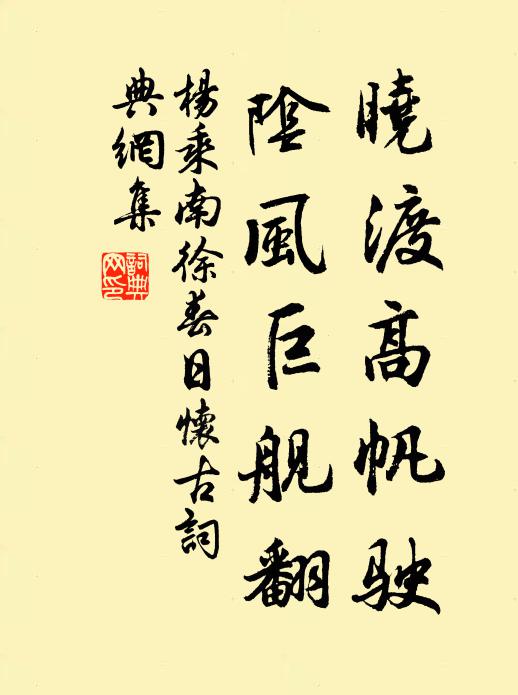 曉渡高帆駛
陰風巨舰翻
楊乘南徐春日懷古詞
典網集
詞典網印